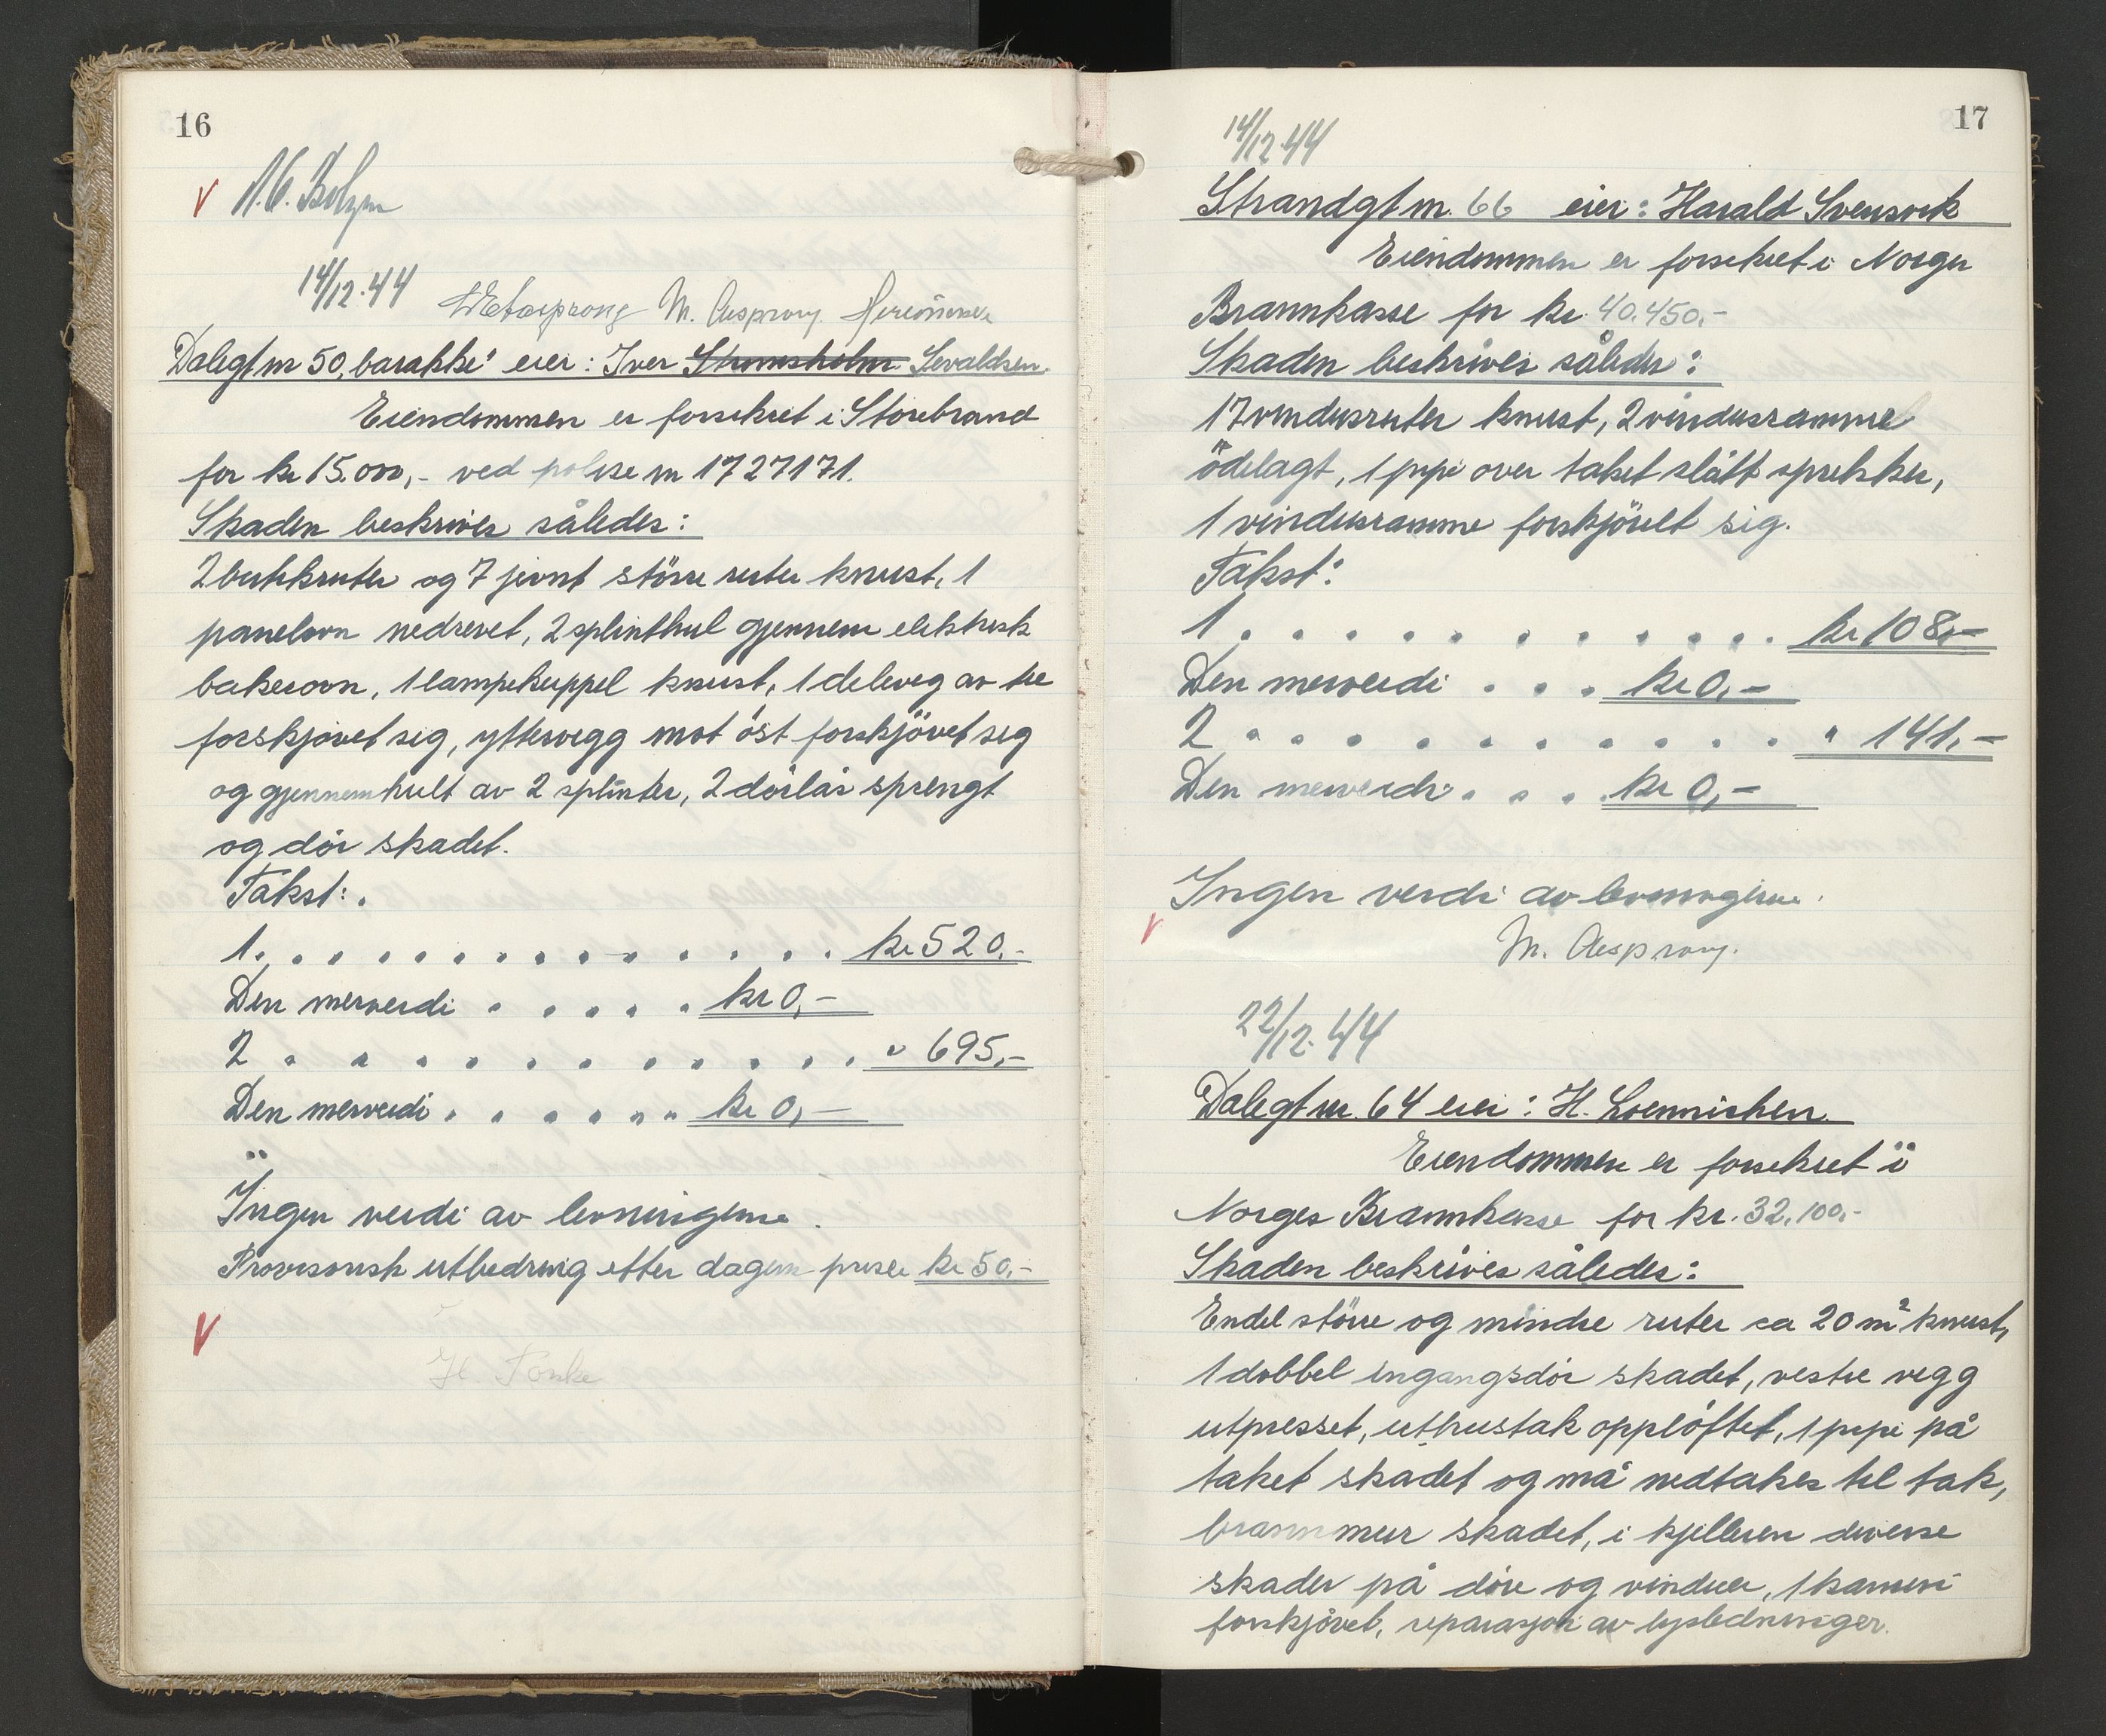 16
V
14/12.44
M. Aesprong.
Dalegt nr 50, barakke: eier: Iver Strømsholm Sevaldsen.
Eiendommen er forsikret i Storebrand
for kr 15.000,- ved polise nr 1727171.
Skaden beskrives således:
2 butikkruter og 7 jevnt større ruter knust, 1
panelovn nedrevet, 2 splinthul gjennem elektrisk
bakerovn, 1 lampekuppel knust, 1 deleveg av tre
forskjøvet sig, yttervegg mot øst forskjøvet sig
og gjennemhult av 2 splinter, 2 dørlås sprengt
og dør skadet.
Takst:
1. . . . . . . . . . . . . . kr 520,-
Den merverdi . . . . . kr 0,-
2 . . . . . . . . . . . . " 695,-
Den merverdi . . . . . . kr 0,-
Ingen verdi av levningene.
Provisorisk utbedring etter dagens priser kr 50,-
V
17
14/12.44
Strandgt nr. 66 eier: Harald Svensvik
Eiendommen er forsikret i Norges
Brannkasse for kr. 40.450,-
Skaden beskrives således:
17 vindusruter knust, 2 vindusramme
ödelagt, 1 pipe over taket slått sprekker,
1 vindusramme forskjövet sig.
Takst:
1 . . . . . . . . . . . . kr 108,-
Den merverdi . . . kr 0,-
2 . . . . . . . . . . . . " 141,-
Den merverdi . . . kr 0,-
Ingen verdi av levningene.
V
M. Aesprong.
22/12.44
Dalegt nr. 64 eier: H. Loennichen.
Eiendommen er forsikret i
Norges Brannkasse for kr. 32.100,-
Skaden beskrives således:
Endel större og mindre ruter ca 20 m² knust,
1 dobbel ingangsdør skadet, vestre vegg
utpresset, uthustak oppløftet, 1 pipe på
taket skadet og må nedtakes til tak,
brannmur skadet, i kjelleren diverse
skader på døre og vinduer, 1 kamin
forskjøvet, reparasjon av lysledninger.